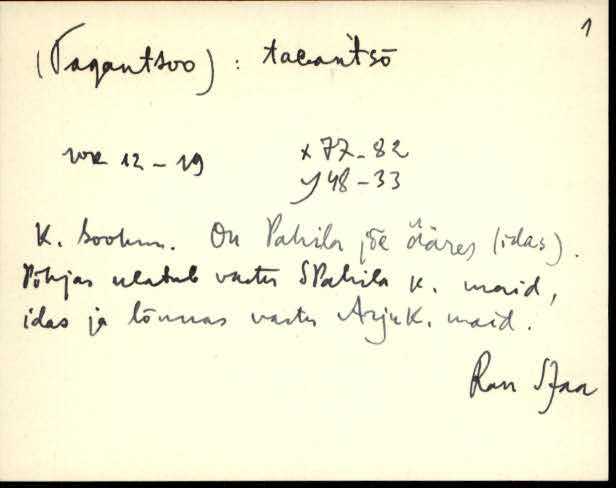 1
(Tagantsoo) : tacantsō
WR 12 - 19 x 77 - 82
y 48 - 33
K. Sookm. On Pahila jõe ääres (idas).
Põhjas ulatub vastu SPahila k. maid,
idas ja lõunas vastu Arju k. maid.
Ran